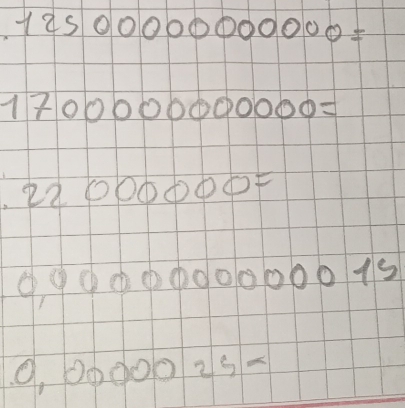 .125 00000000000=
1700000000000=
.22 000000=
0,00000000000 15
0,00000 25=